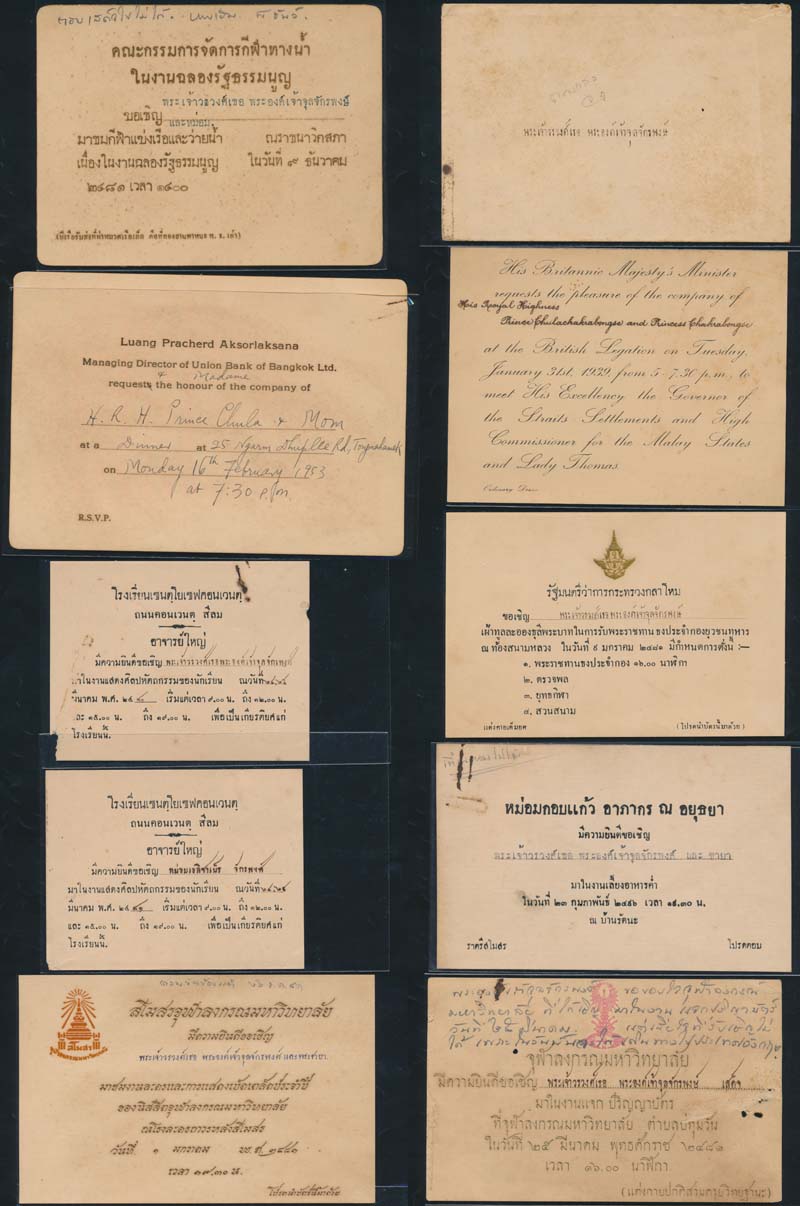 คณะกรรมการจัดการกีฬาทางน้ำ
ในงานฉลองรัฐธรรมนูญ
พระเจ้าวรวงศ์เธอ พระองค์เจ้าจุลจักรพงษ์
ขอเชิญ และหม่อม
มาชมกีฬาแข่งเรือและว่ายน้ำ ณราชนาวิกสภา
เนื่องในงานฉลองรัฐธรรมนูญ ในวันที่ ๙ ธันวาคม
๒๔๘๑ เวลา ๑๔๐๐
Luang Pracherd Aksorlaksana
Managing Director of Union Bank of Bangkok Ltd.
& Madame
request the honour of the company of
H.R.H. Prince Chula & Mom
at a Dinner at 25 Ngarm Dhuplee Rd,
on Monday 16th February 1953
at 7:30 p.m.
R.S.V.P.
โรงเรียนเซนต์โยเซฟคอนเวนต์
ถนนคอนเวนต์ สีลม
อาจารย์ใหญ่
มีความยินดีขอเชิญ พระเจ้าวรวงศ์เธอพระองค์เจ้าจุลจักรพงศ์
มาในงานแสดงศิลปหัตถกรรมของนักเรียน ณวันที่
มีนาคม พ.ศ. ๒๔ เริ่มแต่เวลา ๙.๐๐ น. ถึง ๑๒.๐๐ น.
และ ๑๕.๐๐ น. ถึง ๑๙.๐๐ น. เพื่อเป็นเกียรติยศแก่
โรงเรียนนี้.
โรงเรียนเซนต์โยเซฟคอนเวนต์
ถนนคอนเวนต์ สีลม
อาจารย์ใหญ่
มีความยินดีขอเชิญ จักรพงศ์
มาในงานแสดงศิลปหัตถกรรมของนักเรียน ณวันที่
มีนาคม พ.ศ. ๒๔ เริ่มแต่เวลา ๙.๐๐ น. ถึง ๑๒.๐๐ น.
และ ๑๕.๐๐ น. ถึง ๑๙.๐๐ น. เพื่อเป็นเกียรติยศแก่
โรงเรียนนี้.
สโมสรจุฬาลงกรณมหาวิทยาลัย
มีความยินดีขอเชิญ
พระเจ้าวรวงศ์เธอ พระองค์เจ้าจุลจักรพงษ์ และพระชายา.
มาชมงานฉลองและการแสดงเบ็ดเตล็ดประจำปี
ของนิสสิตจุฬาลงกรณมหาวิทยาลัย
ณโรงละคอนถาวรหลังสโมสร
วันที่ ๑ มกราคม พ.ศ. ๒๔๘๑
เวลา ๑๗.๓๐ น.
โปรดนำบัตรนี้มาด้วย
พระเจ้าวรวงศ์เธอ พระองค์เจ้าจุลจักรพงษ์
His Britannic Majesty's Minister
requests the pleasure of the company of
His Royal Highness
Prince Chulachakrabongse and Princess Chakrabongse
at the British Legation on Tuesday,
January 31st, 1939, from 5-7.30 p.m., to
meet His Excellency the Governor of
the Straits Settlements and High
Commissioner for the Malay States
and Lady Thomas.
Ordinary Dress
รัฐมนตรีว่าการกระทรวงกลาโหม
ขอเชิญ พระเจ้าวรวงศ์เธอพระองค์เจ้าจุลจักรพงษ์
เฝ้าทูลละอองธุลีพระบาทในการรับพระราชทานธงประจำกองยุวชนทหาร
ณ ท้องสนามหลวง ในวันที่ ๙ มกราคม ๒๔๘๑ มีกำหนดการดั่งนี้ :—
๑. พระราชทานธงประจำกอง ๑๖.๐๐ นาฬิกา
๒. ตรวจพล
๓. ยุทธกีฬา
๔. สวนสนาม
แต่งกายเต็มยศ (โปรดนำบัตร์นี้มาด้วย)
หม่อมกอบแก้ว อาภากร ณ อยุธยา
มีความยินดีขอเชิญ
พระเจ้าวรวงศ์เธอ พระองค์เจ้าจุลจักรพงศ์ และ ชายา
มาในงานเลี้ยงอาหารค่ำ
ในวันที่ ๒๓ กุมภาพันธ์ ๒๔๙๖ เวลา ๑๙.๓๐ น.
ณ บ้านรัตนะ
ราตรีสโมสร โปรดตอบ
จุฬาลงกรณ์มหาวิทยาลัย
มีความยินดีขอเชิญ พระเจ้าวรวงศ์เธอ พระองค์เจ้าจุลจักรพงษ์ เสด็จ
มาในงานแจก ปริญญาบัตร
ที่จุฬาลงกรณ์มหาวิทยาลัย ตำบลปทุมวัน
ในวันที่ ๒๕ มีนาคม พุทธศักราช ๒๔๘๑
เวลา ๑๖.๐๐ นาฬิกา.
(แต่งกายปกติสวมครุยวิทยฐานะ)